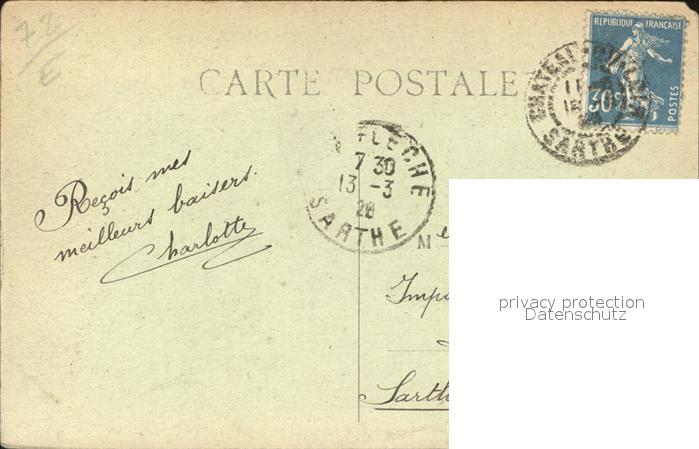 72
E
CARTE POSTALE
REPUBLIQUE FRANÇAISE
30c
POSTES
SARTHE
FLECHE
7 30
13 -3
28
SARTHE
Reçois mes
meilleurs baisers.
Charlotte
M
Sarth
privacy protection
Datenschutz